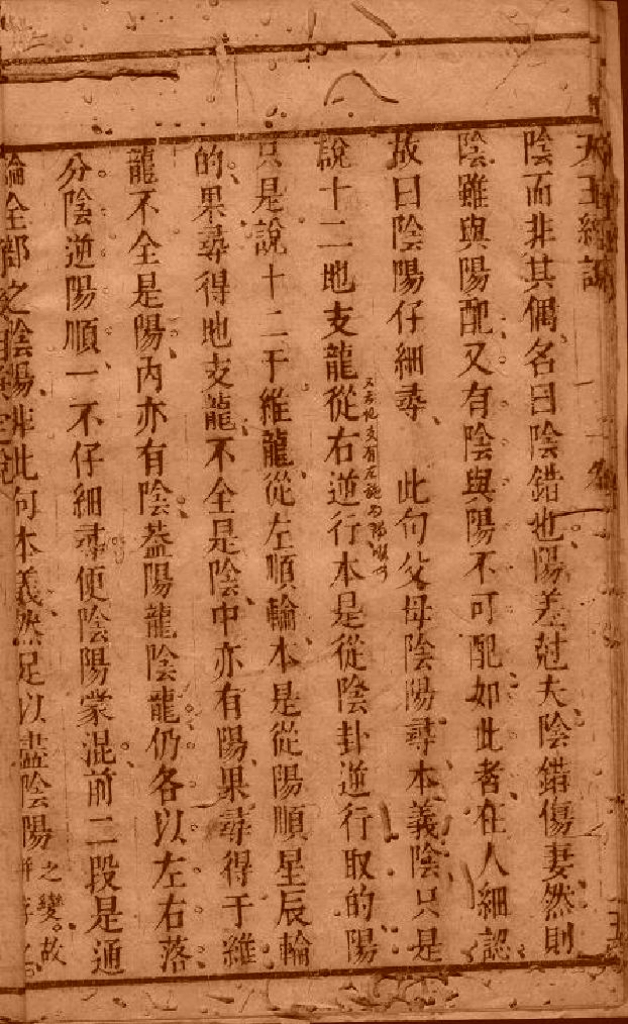 天玉經說
陰而非其偶、名曰陰錯也、陽差尅夫、陰錯傷妻、然則
陰雖與陽配、又有陰與陽不可配、如此者、在人細認、
故曰陰陽仔細尋、 此句父母陰陽尋、本義陰只是
說十二地支龍從右逆行、本是從陰卦逆行取的、陽
只是說十二干維龍、從左順輪、本是從陽順星辰輪
的、果尋得地支龍、不全是陰、中亦有陽、果尋得干維
龍不全是陽、內亦有陰、葢陽龍陰龍、仍各以左右落
分陰逆陽順、一不仔細尋、便陰陽蒙混、前二段是通
論全部之陰陽、非此句本義、然足以盡陰陽之變。故